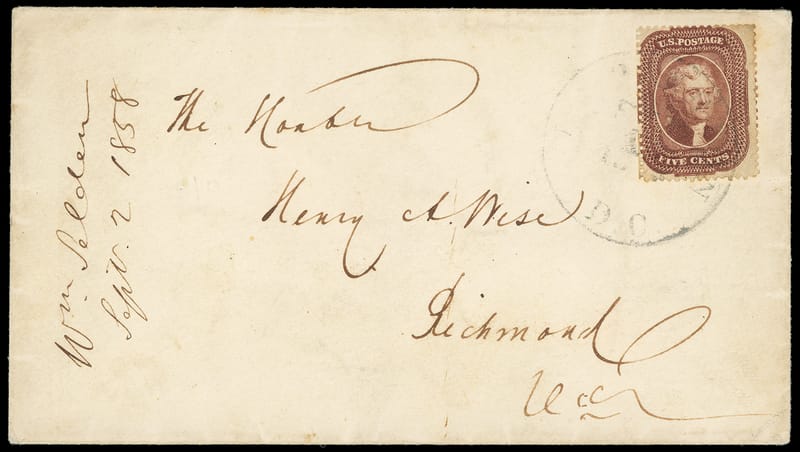 U.S. POSTAGE
FIVE CENTS
D.C.
The Honble
Henry A. Wise
Richmond
Va
Wm. Selden
Sept. 2 1858